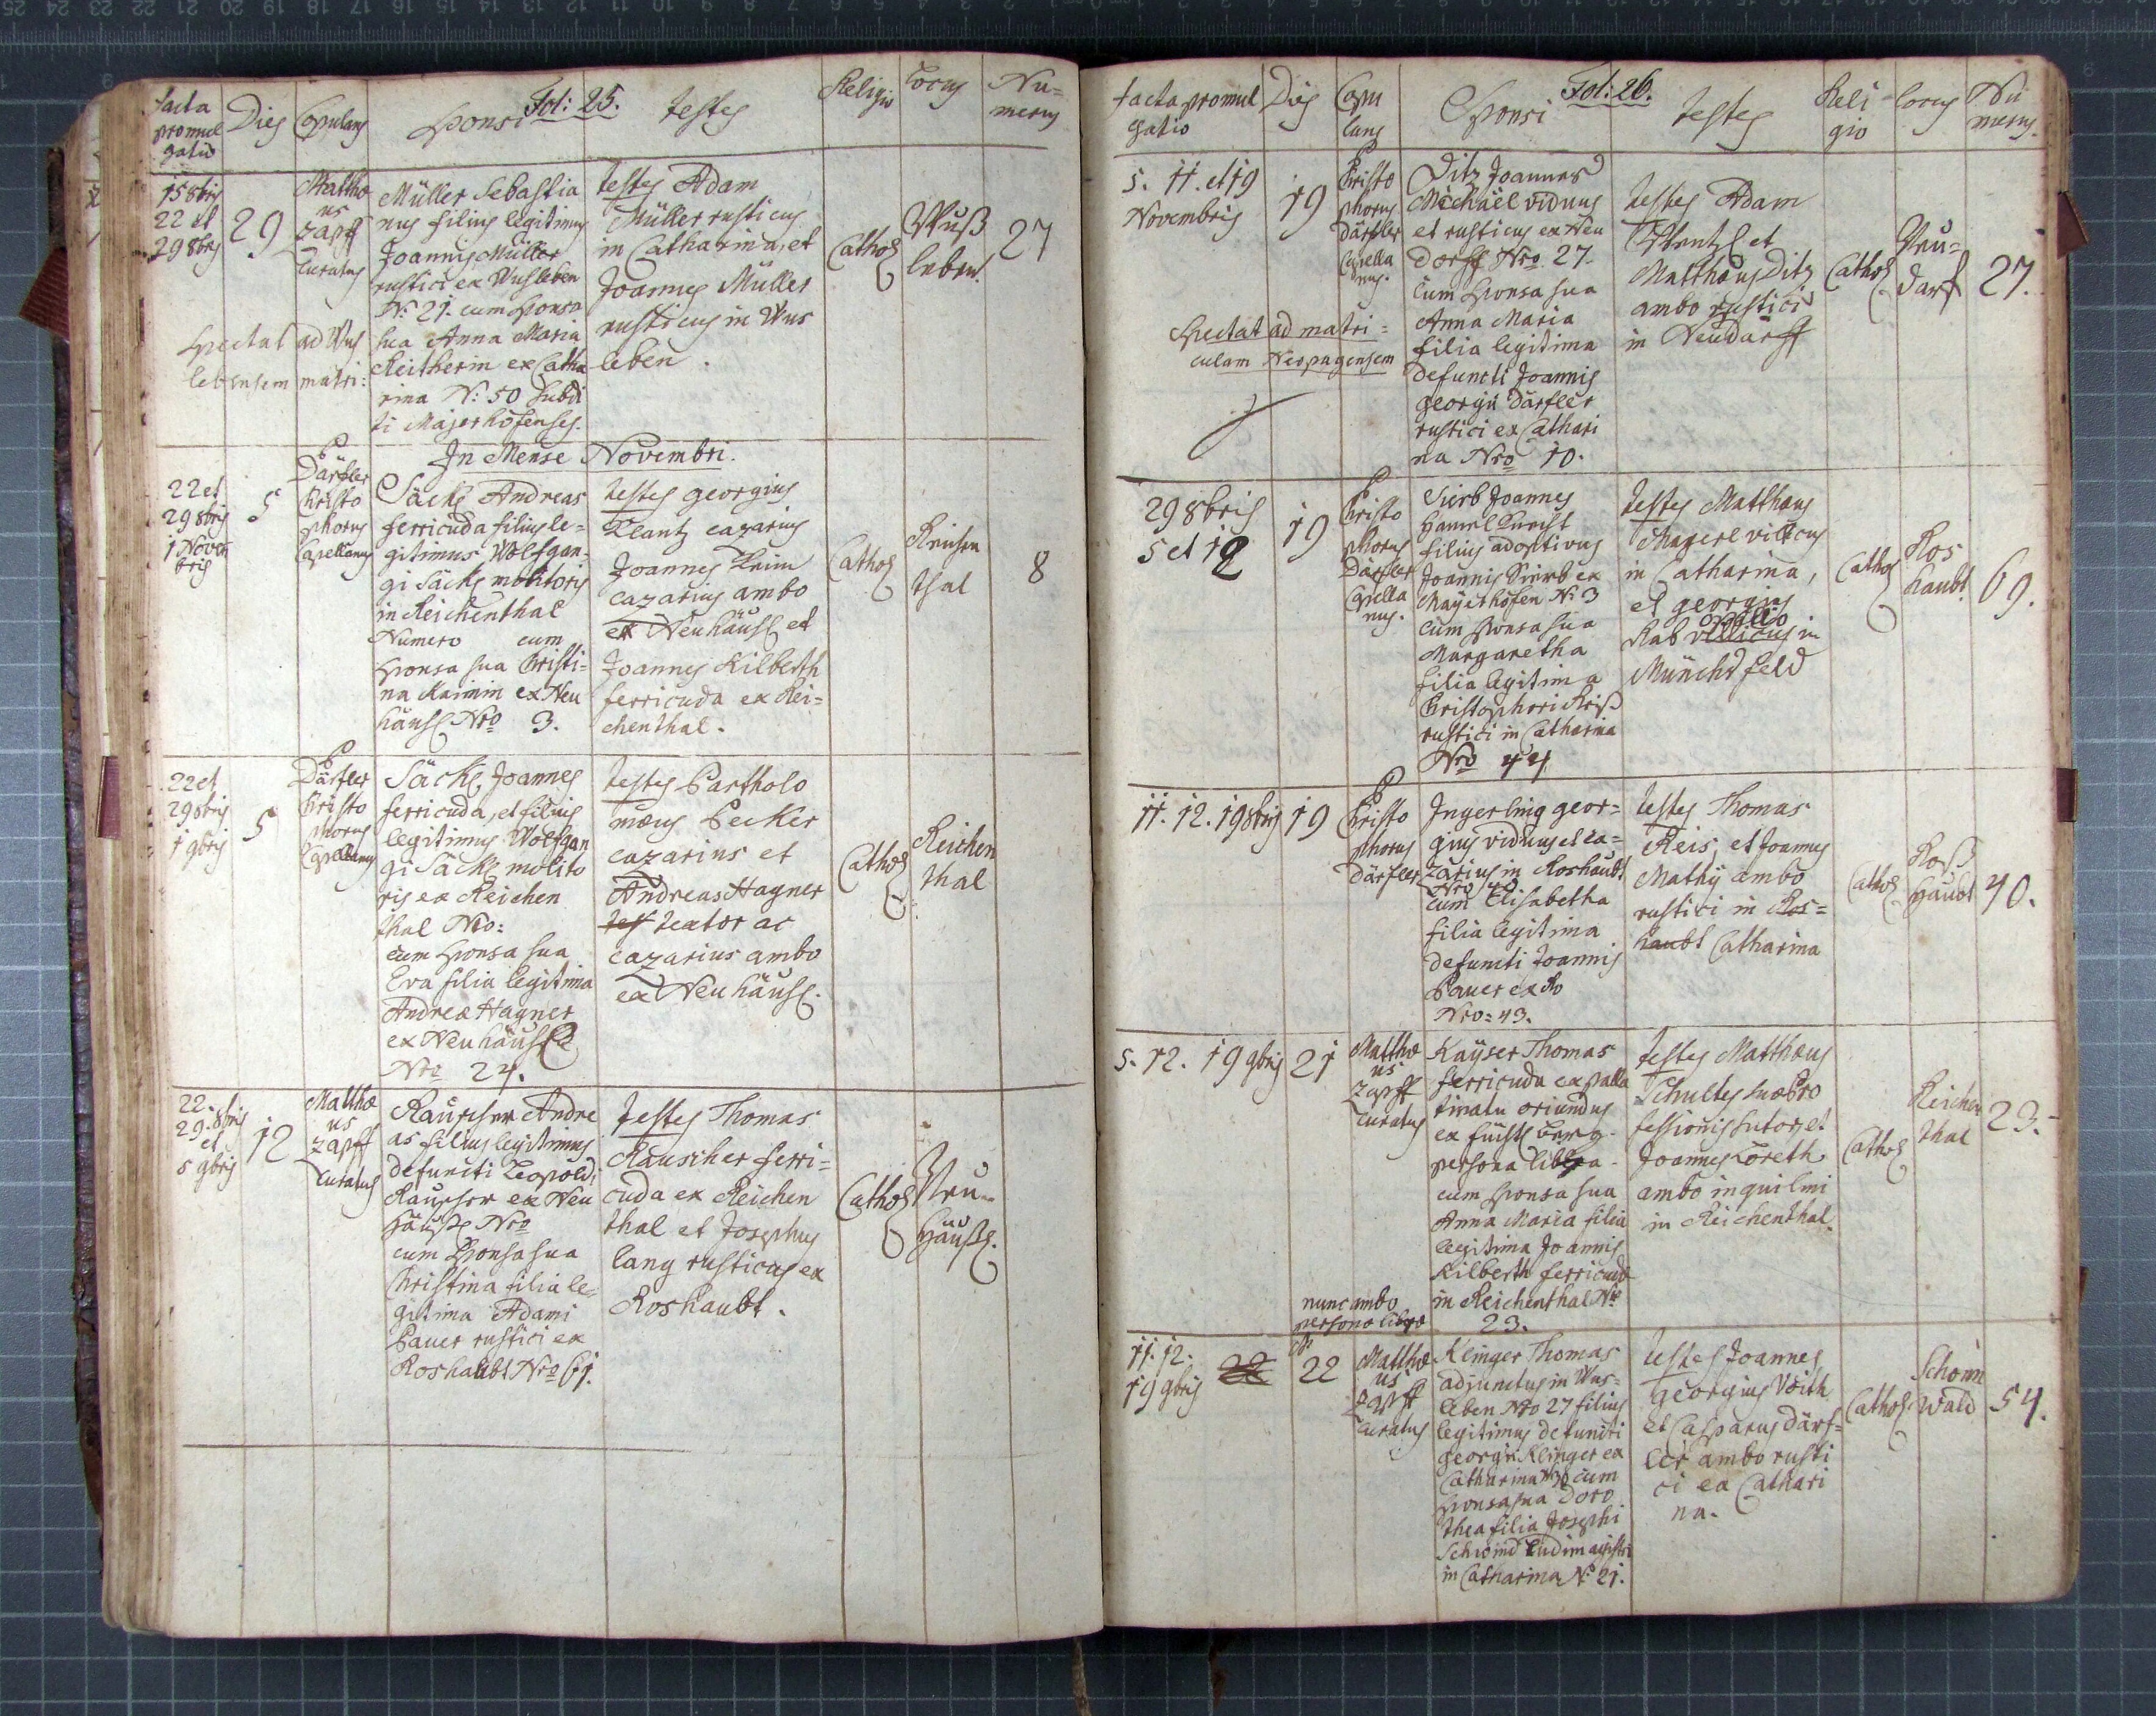 Fol: 25.
facta promul gatio
Dies
Copulans
Sponsi
testes
Religio
Locus
Nu=
merus
15 8bris
22 et
29 8bris
29
Matthæ
us
Zapff
Curatus
Müller Sebastia
nus filius legitimus
Joannis Müller
rustici ex Wusleben
N: 21. cum sponsa
sua Anna Maria
Reitherin ex Catha
rina N: 50 subdi
ti Majerhöfenses.
Spectat ad Wus
lebensem matri:
testes Adam
Müller rusticus
in Catharina, et
Joannes Müller
rusticus in Wus
leben.
Cathol
Wuß
leben.
27
In Mense Novembri.
22 et
29 8bris
1 Novem
bris
5
P
Därfler
Christo
phorus
Capellanus
Säckl Andreas
ferricuda filius le=
gitimus Wolfgan-
gi Säckl molitoris
in Reichenthal
Numero cum
sponsa sua Christi=
na Kaimin ex Neu
häusl Nro 3.
testes georgius
Plantz cazarius
Joannes Keim
cazarius ambo
ex Neuhäusl et
Joannes Kilberth
ferricuda ex Rei=
chenthal.
Cathol
Reichen
thal
8
22 et
29 8bris
1 9bris
5
P
Därfler
Christo
phorus
Capellanus
Säckl Joannes
ferricuda, et filius
legitimus Wolfgan
gi Säckl molito
ris ex Reichen
thal Nro:
cum sponsa sua
Eva filia legitima
Andreæ Hagner
ex Neuhäusl
Nro 24.
testes Bartholo
mæus Becker
cazarius et
Andreas Hagner
tes textor ac
cazarius ambo
ex Neuhäusl.
Cathol
Reichen
thal
22.
29. 8bris
et
5 9bris
12
Matthæ
us
Zapff
Curatus
Rauscher Andre
as filius legitimus
defuncti Leopoldi
Rauscher ex Neu
häusl Nro
cum Sponsa sua
Christina filia le=
gitima Adami
Bauer rustici ex
Roshaubt Nro 61.
testes Thomas
Rauscher ferri=
cuda ex Reichen
thal et Josephus
lang rusticus ex
Roshaubt.
Cathol
Neu=
häusl.
Fol: 26.
facta promul
gatio
Dies
Copu
lans
Sponsi
testes
Reli=
gio
locus
Nu
merus.
5. 11. et 19
Novembris
19
P
Christo
phorus
Därfler
Capella
nus.
Ditz Joannes
Michäel viduus
et rusticus ex Neu
dorff Nro 27.
cum sponsa sua
Anna Maria
filia legitima
defuncti Joannis
georgii Därfler
rustici ex Cathari
na Nro 10.
Spectat ad matri=
culam Neopagensem
testes Adam
Wentzl et
Matthæus Ditz
ambo rustici
in Neudarff
Cathol
Neu=
darf
27.
29 8bris
5 et 12
19
P
Christo
phorus
Därfler
Capella
nus.
Sierb Joannes
Hamelknecht
filius adoptivus
Joannis Sierb ex
Mayerhöfen N: 3
cum sponsa sua
Margaretha
filia legitima
Christophori Riß
rustici in Catharina
Nro 44
testes Matthæus
Mayerl villicus
in Catharina,
et georgius
opilio
Rab villicus in
Münchsfeld
Cathol
Ros
haubt
69.
11. 12. 19 8bris
19
P
Christo
phorus
Därfler
Ingerling geor=
gius viduus et ca=
zarius in Roshaubt
Nro 40
cum Elisabetha
filia legitima
defuncti Joannis
Bauer ex Ro
Nro: 43.
testes Thomas
Reis, et Joannes
Mathÿ ambo
rustici in Ros=
haubt Catharina
Cathol
Roß
haubt
40.
5. 12. 19 9bris
21
Matthæ
us
Zapff
Curatus
Kaÿser Thomas
ferricuda ex palla
tinatu oriundus
ex füchsl berg-
persona libera-
cum sponsa sua
Anna Maria filia
legitima Joannis
Kilberth ferricudæ
in Reichenthal Nro
23.
nunc ambo
personæ liberæ
testes Matthæus
Schultes suæ Pro
fessionis sutor, et
Joannes Loreth
ambo inquilini
in Reichenthal.
Cathol
Reichen
thal
23.
11. 12.
19 9bris
22
22
Matthæ
us
Zapff
Curatus
Klinger Thomas
adjunctus in Wus=
leben Nro 27 filius
legitimus defuncti
georgii Klinger ex
Catharina cum
sponsa sua Doro
thea filia Josephi
Schwind ludimagistri
in Catharina N: 21.
testes Joannes
georgius Voith
et Casparus Därf=
ler ambo rusti
ci ex Cathari
na.
Cathol
Schönn
wald
54.